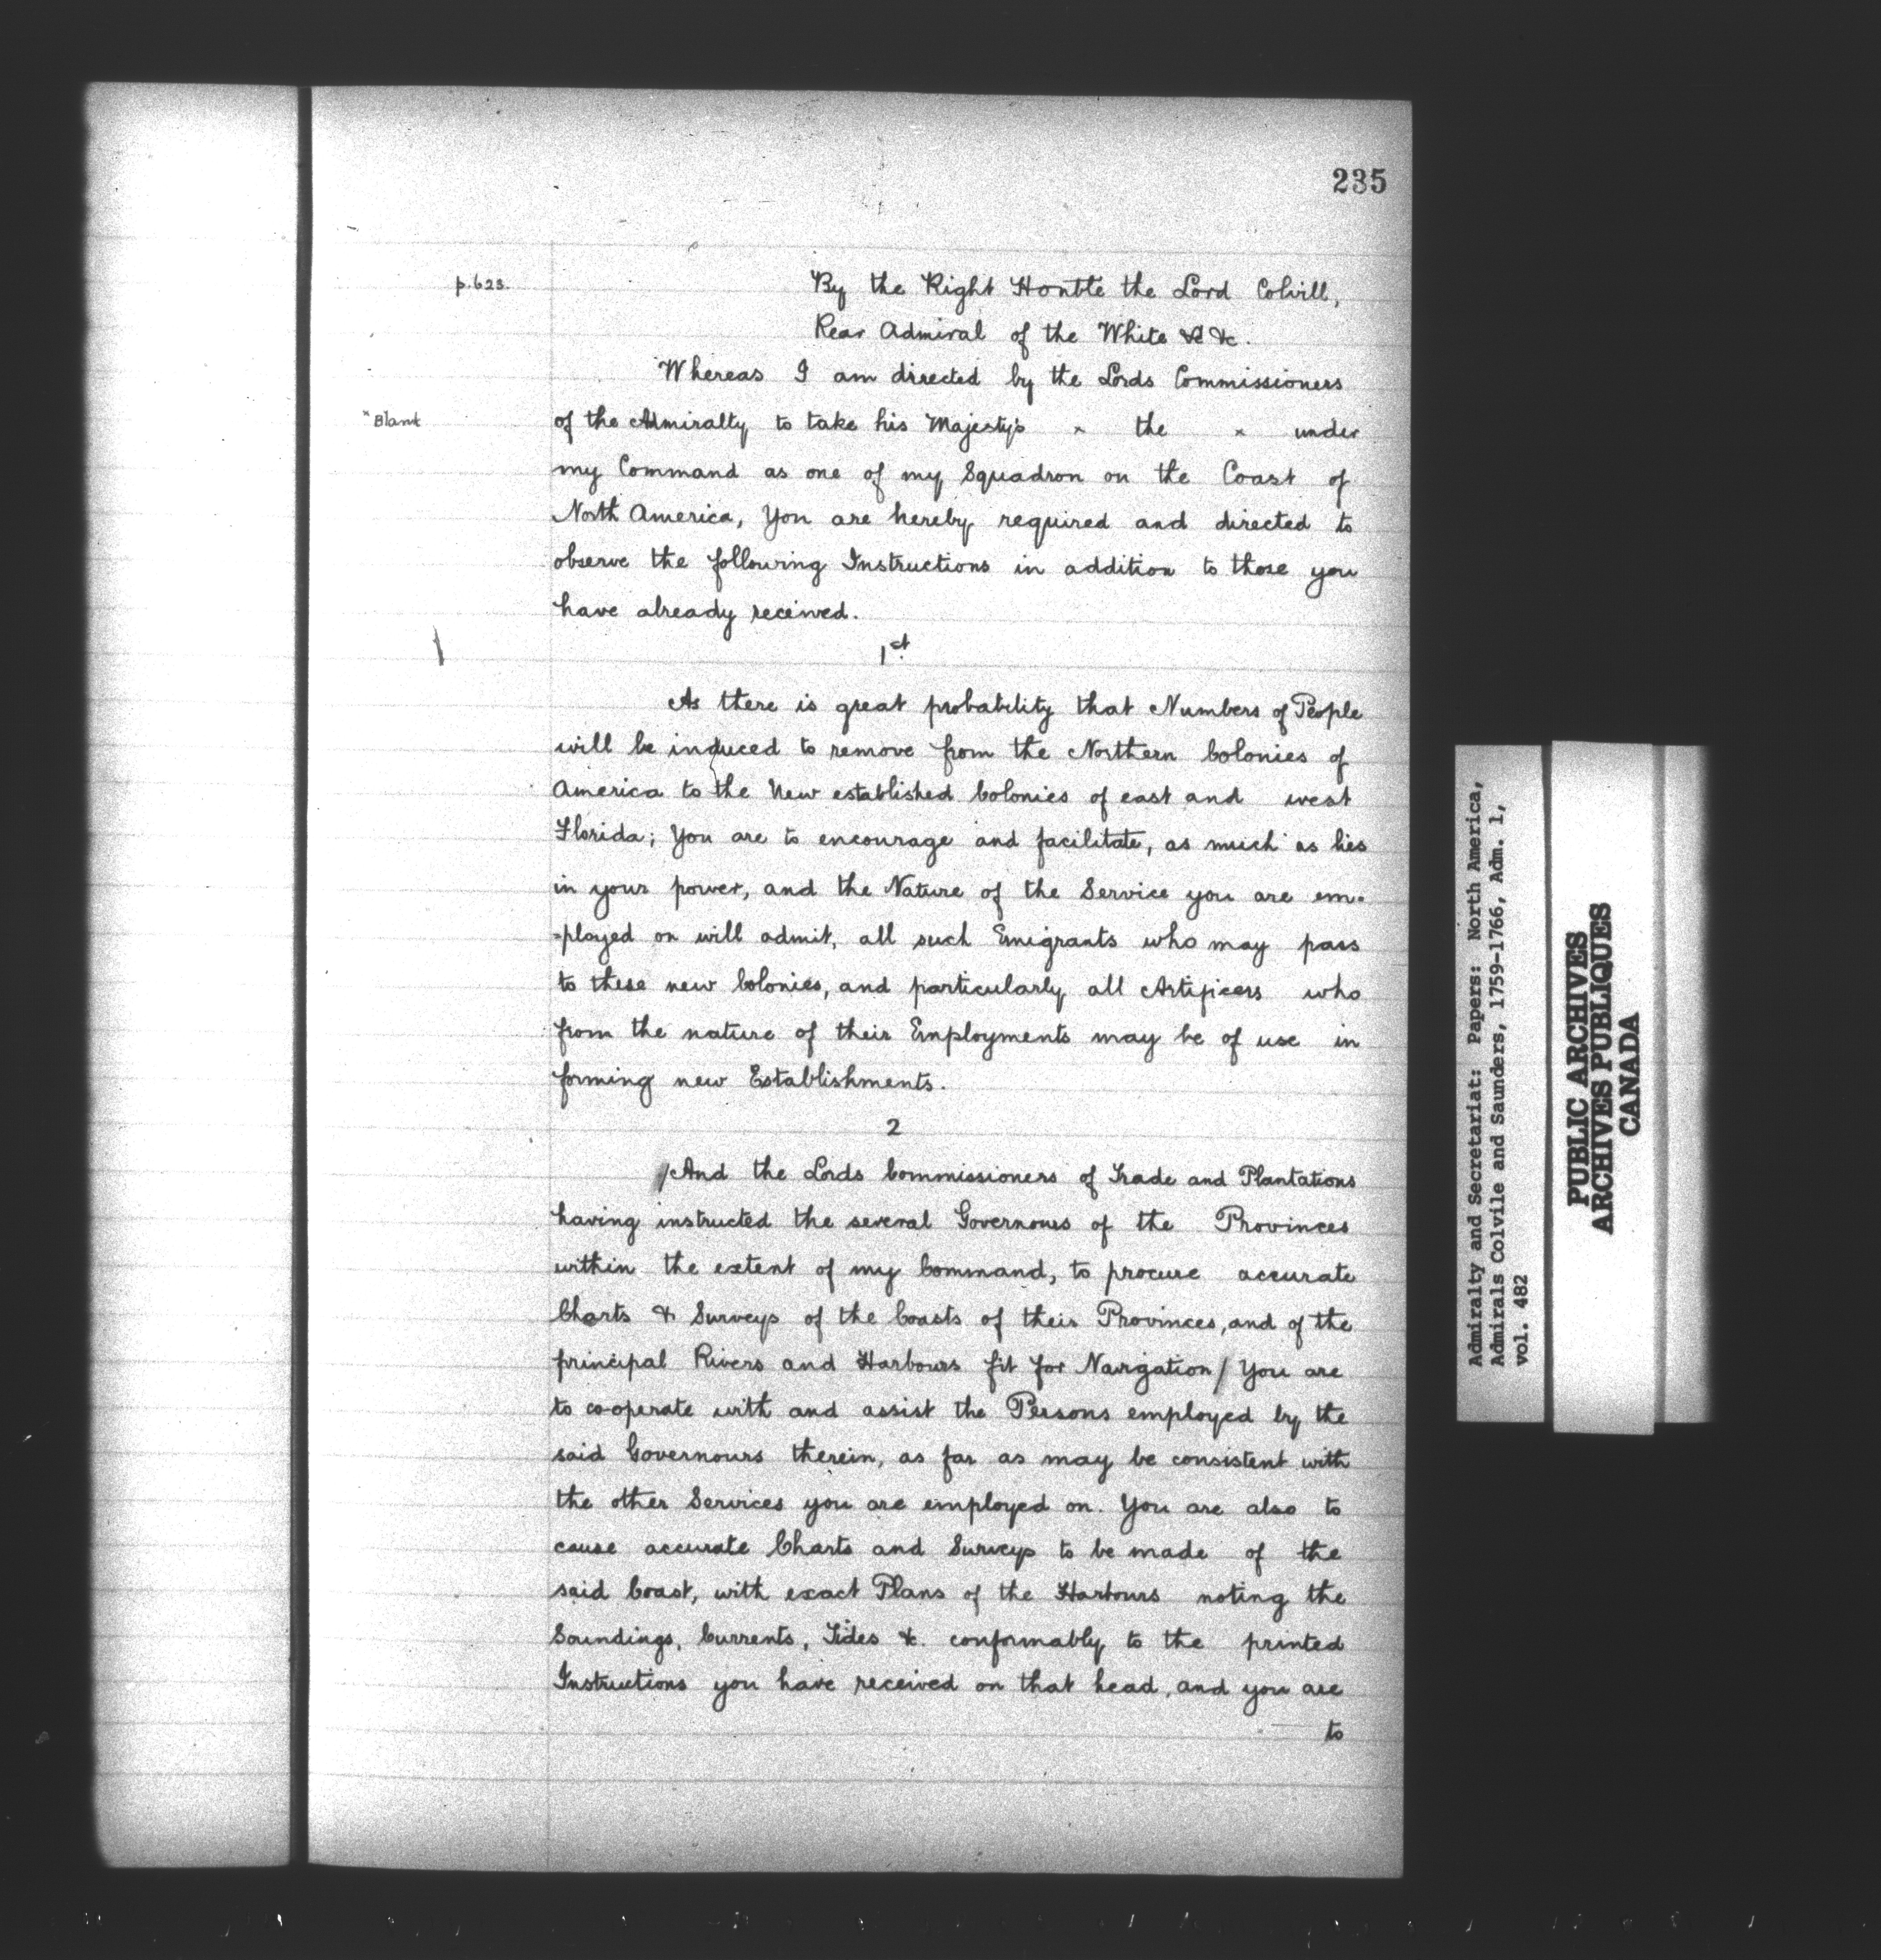 235
p. 623.
By the Right Honble the Lord Colvill,
Rear Admiral of the White &c &c.
Whereas I am directed by the Lords Commissioners
× Blank
of the Admiralty to take his Majesty's × the × under
my Command as one of my Squadron on the Coast of
North America, You are hereby required and directed to
observe the following Instructions in addition to those you
have already received.
1st
As there is great probability that Numbers of People
will be induced to remove from the Northern Colonies of
America to the New established Colonies of east and west
Florida; You are to encourage and facilitate, as much as lies
in your power, and the Nature of the Service you are em-
-ployed on will admit, all such Emigrants who may pass
to these new Colonies, and particularly all Artificers who
from the nature of their Employments may be of use in
forming new Establishments.
2
/And the Lords Commissioners of Trade and Plantations
having instructed the several Governours of the Provinces
within the extent of my Command, to procure accurate
Charts & Surveys of the Coasts of their Provinces, and of the
principal Rivers and Harbours fit for Navigation/ You are
to cooperate with and assist the Persons employed by the
said Governours therein, as far as may be consistent with
the other Services you are employed on. You are also to
cause accurate Charts and Surveys to be made of the
said Coast, with exact Plans of the Harbours noting the
Soundings, Currents, Tides &c. conformably to the printed
Instructions you have received on that head, and you are
to
Admiralty and Secretariat: Papers: North America,
Admirals Colvile and Saunders, 1759-1766, Adm. 1,
vol. 482
PUBLIC ARCHIVES
ARCHIVES PUBLIQUES
CANADA